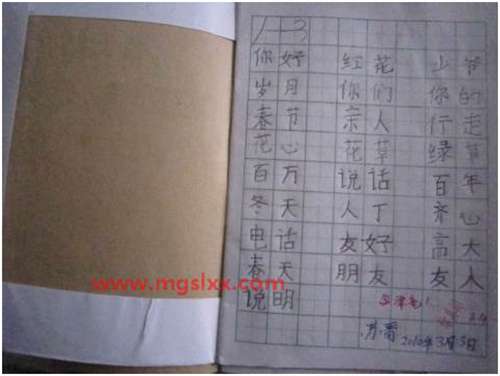 你好 红花 少爷
岁月 你们 你的
春节 亲人 行走
花心 花草 绿节
百万 说话 百年
冬天 人丁 齐心
电话 友好 高大
春天 朋友 友人
www.mgslxx.com
说明
2010年3月3日